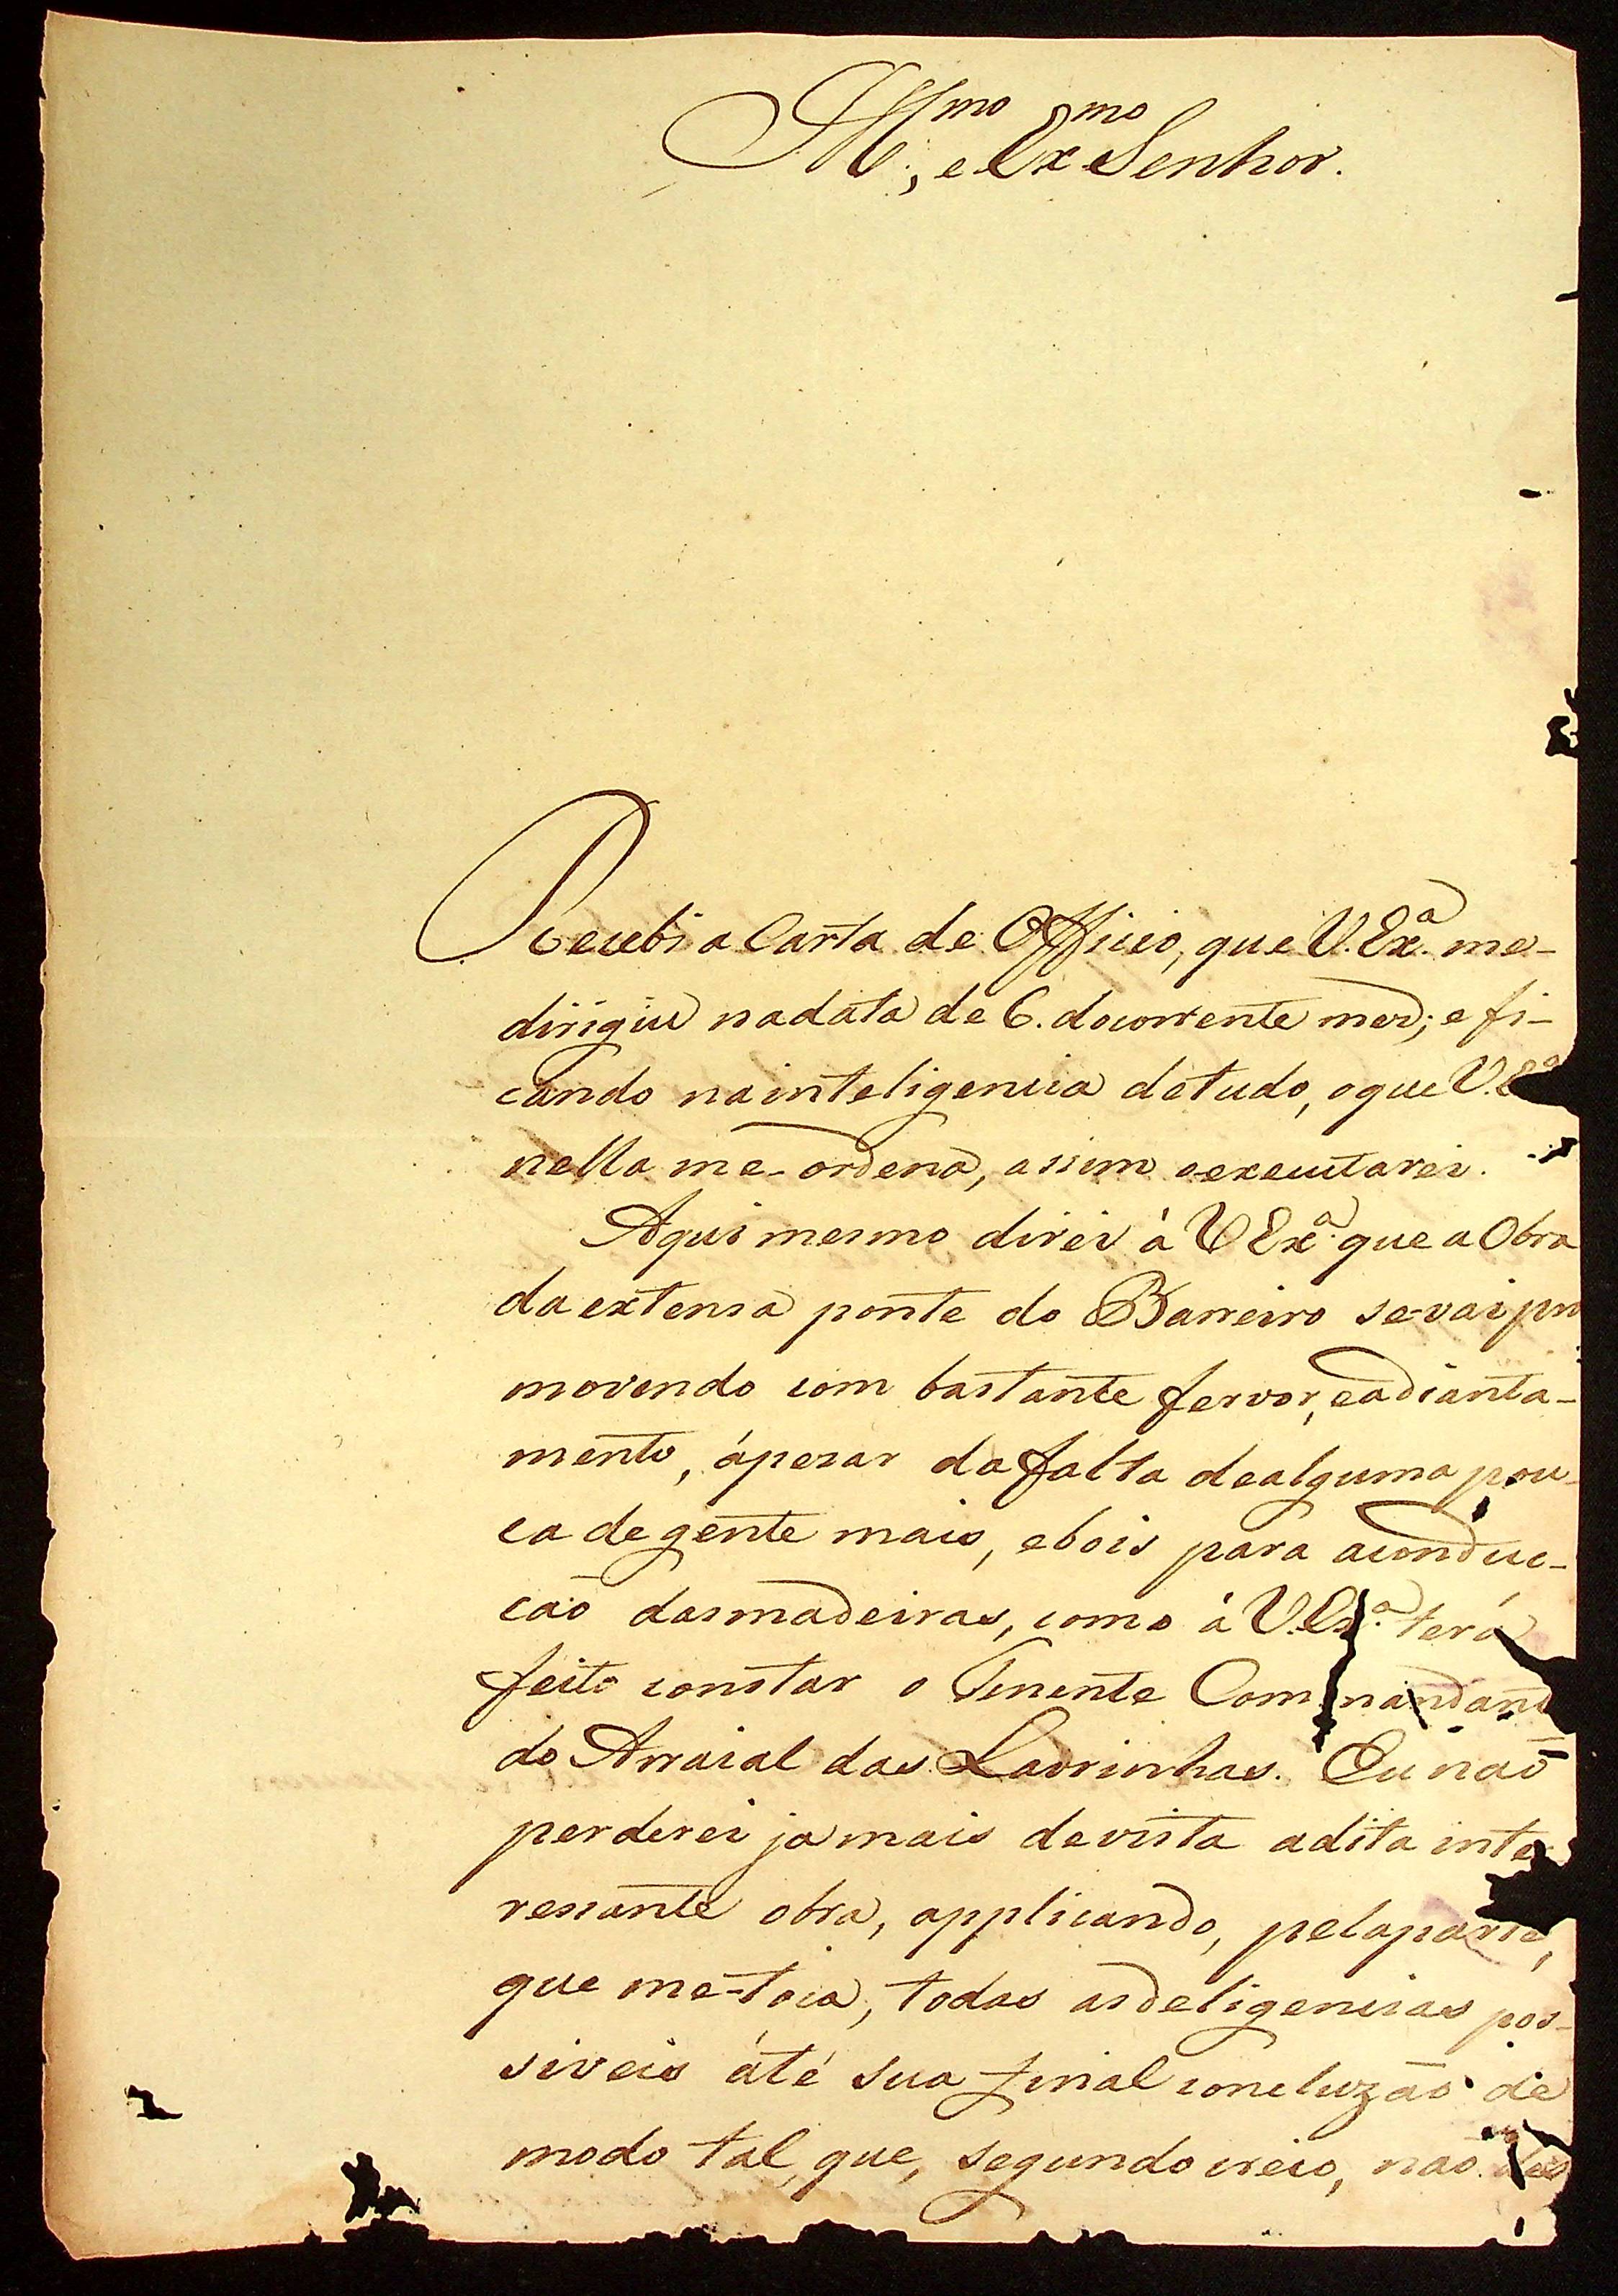 Ill.mo, e Ex.mo Senhor.
Recebi a Carta de Officio, que V. Ex.a me-
dirigiu nadata de 6. docorrente mez; e fi-
cando nainteligencia detudo, oque V. E
nella me-ordena, assim oexecutarei.
Aqui mesmo direi á V Ex.a que a Obra
da extensa ponte do Barreiro se-vai pro
movendo com bastante fervor, eadianta-
mento, ápezar da falta dealguma pou-
ca de gente mais, ebois para aconduc-
cão dasmadeiras, como á V. Ex.a terá
feito constar o Tenente Commandant
do Arraial das Lavrinhas. Eu não
perderei jamais devista adita inte-
ressante obra, applicando, pelaparte,
que me-toca, todas asdeligencias pos-
siveis áté sua final concluzão de
modo tal, que, segundo creio, não des